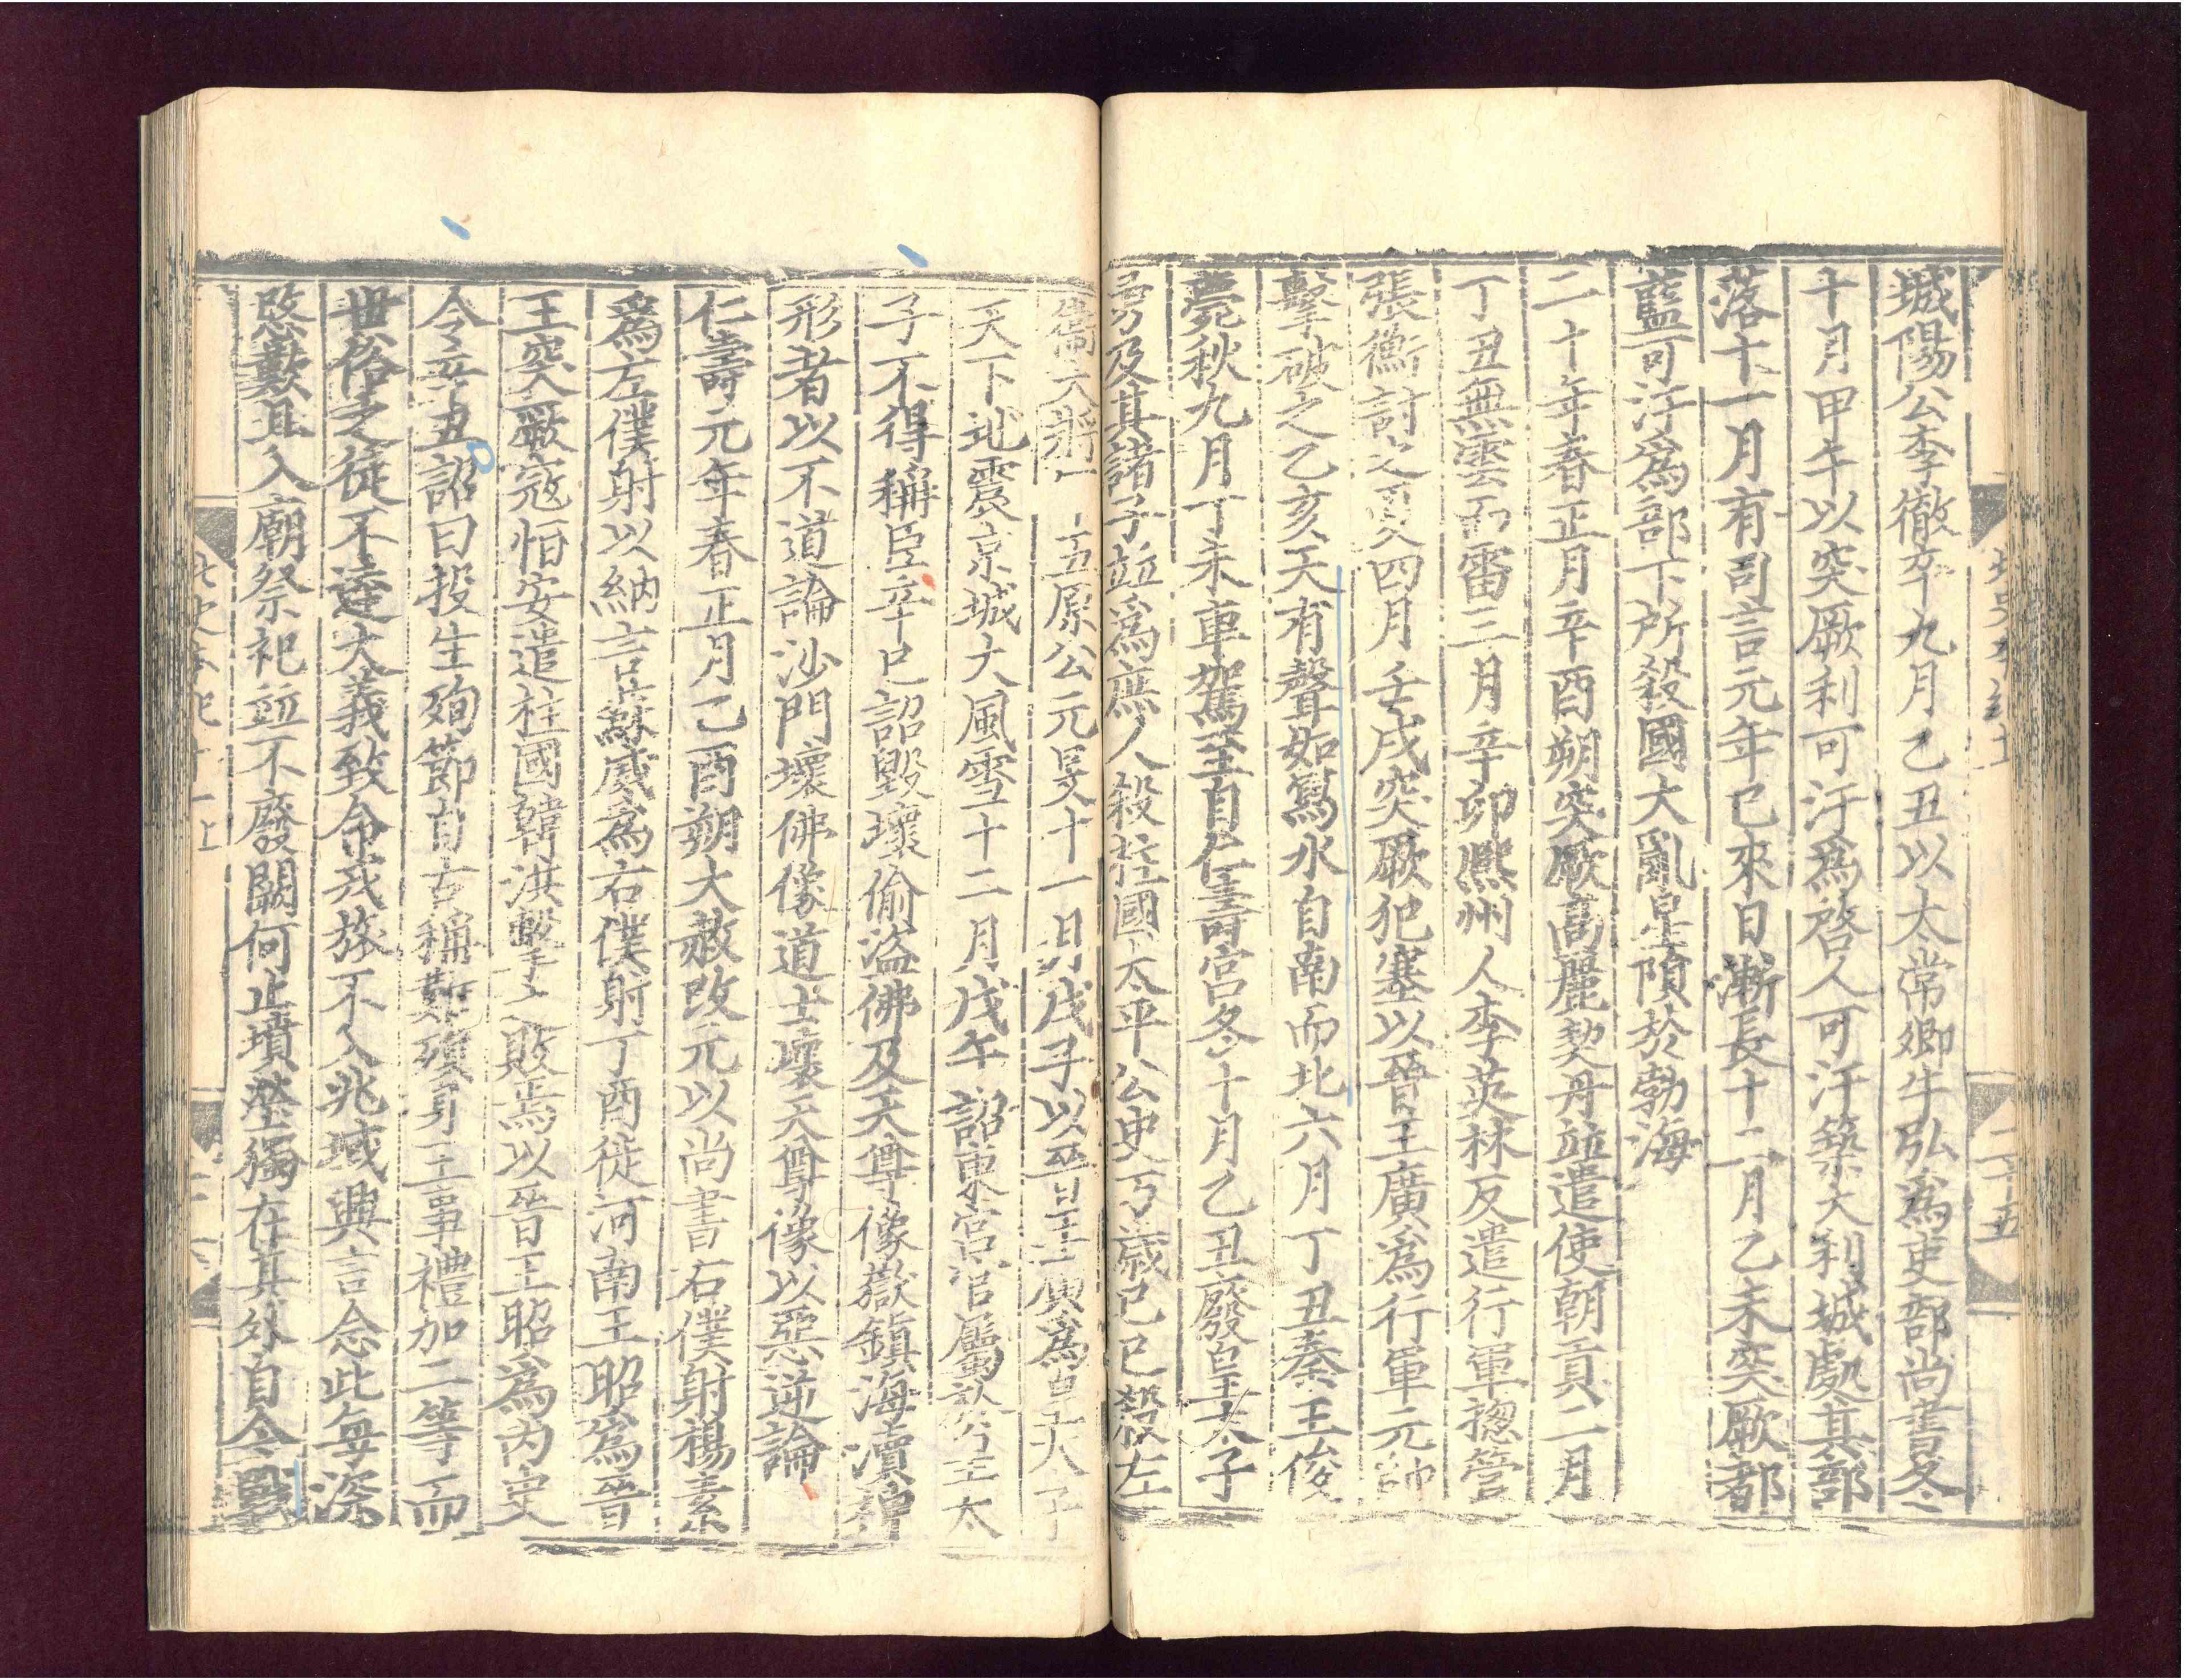 城陽公李徹卒九月乙丑以太常卿牛弘爲吏部尚書冬
十月甲午以突厥利可汗爲啓人可汗築大利城處其部
落十一月有司言元年已來日漸長十二月乙未突厥都
藍可汗爲部下所殺國大亂星隕於勃海
二十年春正月辛酉朔突厥高麗契丹並遣使朝貢二月
丁丑無雲而雷三月辛卯熈州人李英林反遣行軍揔管
張衡討之夏四月壬戌突厥犯塞以晉王廣爲行軍元帥
擊破之乙亥天有聲如寫水自南而北六月丁丑秦王俊
薨秋九月丁未車駕至自仁壽宮冬十月乙丑廢皇太子
勇及其諸子並爲庶人殺柱國太平公史万歲己巳殺左
衞大將 五原公元旻十一月戊子以晉王廣爲皇太子
天下地震京城大風雪十二月戊午詔東宮官屬於皇太
子不得稱臣辛巳詔毀壞偷盜佛及天尊像嶽鎮海瀆神
形者以不道論沙門壞佛像道士壞天尊像以惡逆論
仁壽元年春正月乙酉朔大赦改元以尚書右僕射楊素
爲左僕射以納言蘇威爲右僕射丁酉徙河南王昭爲晉
王突厥寇恒安遣柱國韓洪擊之敗焉以晉王昭爲内史
令辛丑詔曰投生殉節自古稱難殞身王事禮加二等而
世俗之徒不達大義致命戎旅不入兆域興言念此每深
愍歎且入廟祭祀並不廢闕何止墳塋獨在其外自今戰
北史本紀十一上
二十五